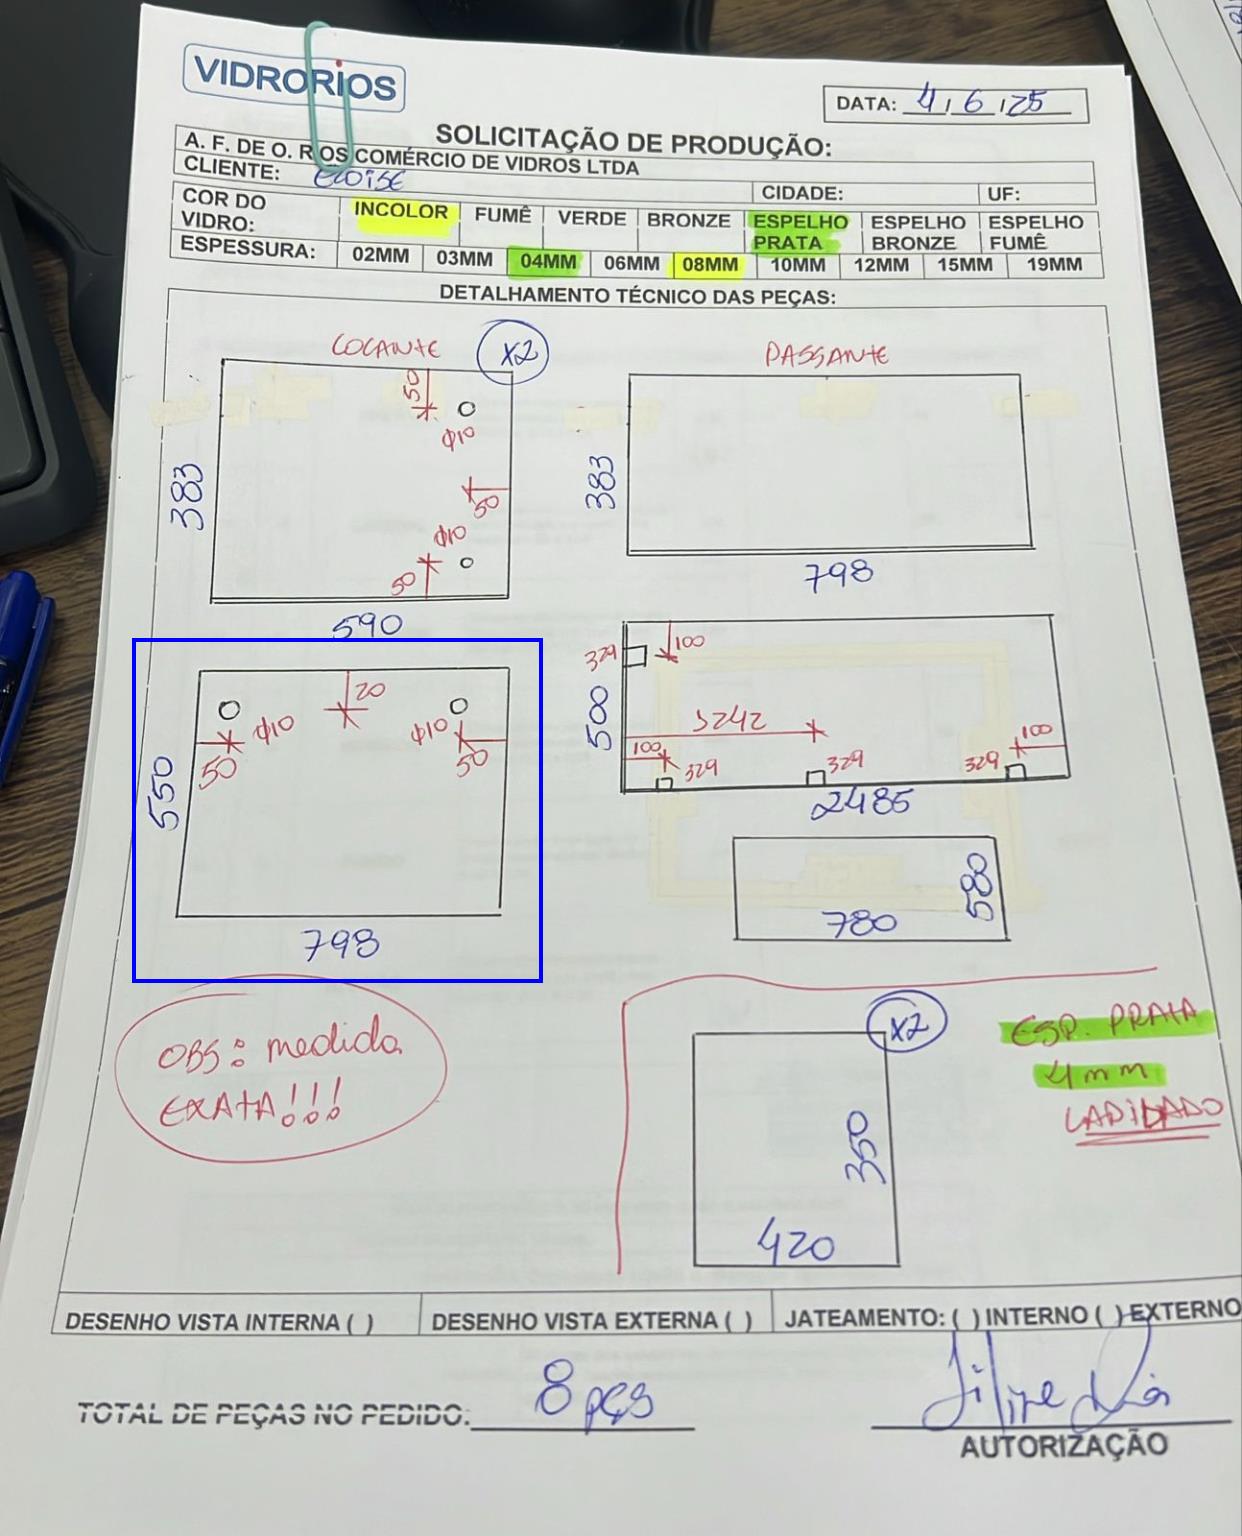 VIDRORIOS
DATA: 4/6/25
SOLICITAÇÃO DE PRODUÇÃO:
A. F. DE O. RIOS COMÉRCIO DE VIDROS LTDA
CLIENTE: ELOISE CIDADE: UF:
COR DO VIDRO: INCOLOR FUMÊ VERDE BRONZE ESPELHO PRATA ESPELHO BRONZE ESPELHO FUMÊ
ESPESSURA: 02MM 03MM 04MM 06MM 08MM 10MM 12MM 15MM 19MM
DETALHAMENTO TÉCNICO DAS PEÇAS:
COLANTE X2
50
Φ10
383
50
Φ10
50
590
PASSANTE
383
798
20
Φ10 Φ10
50 50
550
798
329 100
500
3242
100 329 329 329 100
2485
580
780
OBS: medida
EXATA!!!
X2
350
420
ESP. PRATA
4mm
LAPIDADO
DESENHO VISTA INTERNA ( ) DESENHO VISTA EXTERNA ( ) JATEAMENTO: ( ) INTERNO ( ) EXTERNO
TOTAL DE PEÇAS NO PEDIDO: 8 pçs
AUTORIZAÇÃO